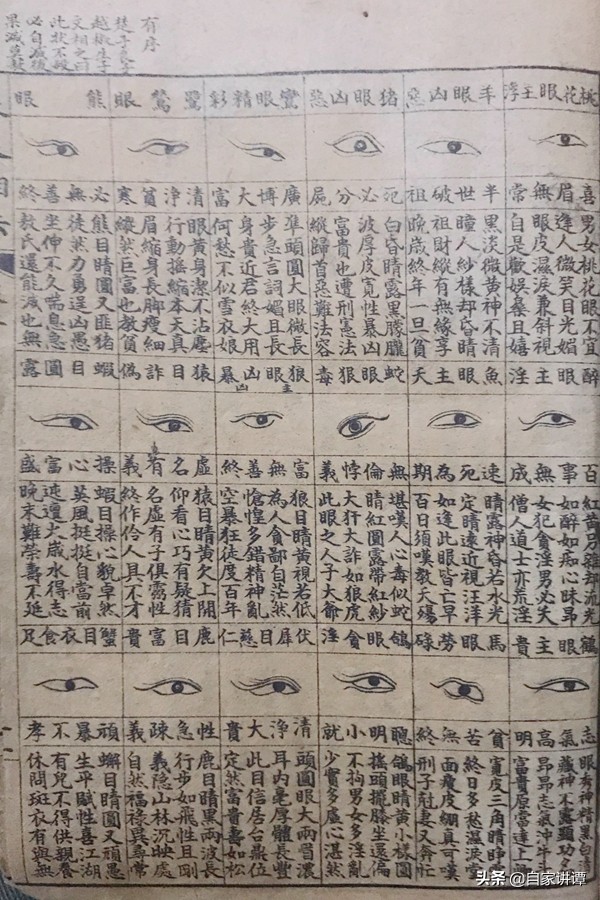 有序
楚子良子
越椒生子
文相之曰
此狀不殺
必自滅後
桃花眼主浮
喜眉無常
男女桃花眼不宜
逢人微笑目光媚
眼皮濕淚兼斜視
自是歡娛樂且嬉
羊眼凶惡
半世破祖
黑淡微黃神不清
瞳人紗樣却昏睛
祖財縱有無緣享
晚歲終年一旦貧
猪眼凶惡
死必分屍
白昏睛露黑朦朧
波厚皮寬性暴凶
富貴也遭刑憲法
縱歸首惡難法容
鸞眼精彩
廣博富
準頭圓大眼微長
步急言詞媚且良
身貴近君終大用
何愁不似雪衣娘
鷺鷥眼
清淨貧寒
眼黃身潔不沾塵
行動搖縮本天真
眉縮身長脚瘦細
縱然巨富也教貧
熊眼
必無善終
熊目睛圓又匪猪
徒然力勇逞凶愚
坐伸不久喘息急
敖氏還能滅也無
醉眼主淫
百事無成
紅黃另雜却流光
如醉如痴心昧昂
女犯貪淫男必夭
僧人道士亦荒淫
魚眼主夭
速死為期
睛露神昏若水光
定睛遠近視汪洋
如逢此眼皆亡早
百日須嘆教夭殤
蛇眼狠毒
無倫悖義
堪嘆人心毒似蛇
睛紅圓露帶紅紗
大奸大詐如狼虎
此眼之人子大爺
狼目主凶暴
富無善終
狼目睛黃視若低
為人貪鄙自茫然
愴惶多錯精神亂
空暴狂徒度百年
猿目詐偽
虛名有義
猿目睛黃欠上開
仰看心巧有疑猜
名虛有子俱靈性
終作伶人具不才
蝦目圓露
操心富盛
蝦目操心貌卓然
英風挺挺自當前
迍邅火歲水得志
晚末難榮壽不延
鶴眼主貴
志氣高明
眼秀神精黑白清
藏神不露顯功名
昂昂志氣沖牛斗
富貴原當達上卿
馬眼勞碌
貧苦無終
寬皮三角睛睜露
終日多愁濕淚堂
面瘦皮綳真可嘆
刑子尅妻又奔忙
鴿眼貪淫
聰明小就
鴿眼睛黃小樣圓
搖頭擺膝坐還偏
不拘男女多淫亂
少實多虛心湛然
伏犀目慈仁
清淨大貴
頭圓眼大兩眉濃
耳內毫厚體長豐
此目信居台鼎位
定然富貴壽如松
鹿目富貴
性急疎義
鹿目睛黑兩波長
行步如飛性且剛
義隱山林沉映處
自然福祿異尋常
蟹目衣食足
頑暴不孝
蠏目睛圓又頑愚
生平賦性喜江湖
有兒不得供親養
休問斑衣有與無
头条 @自家讲谭